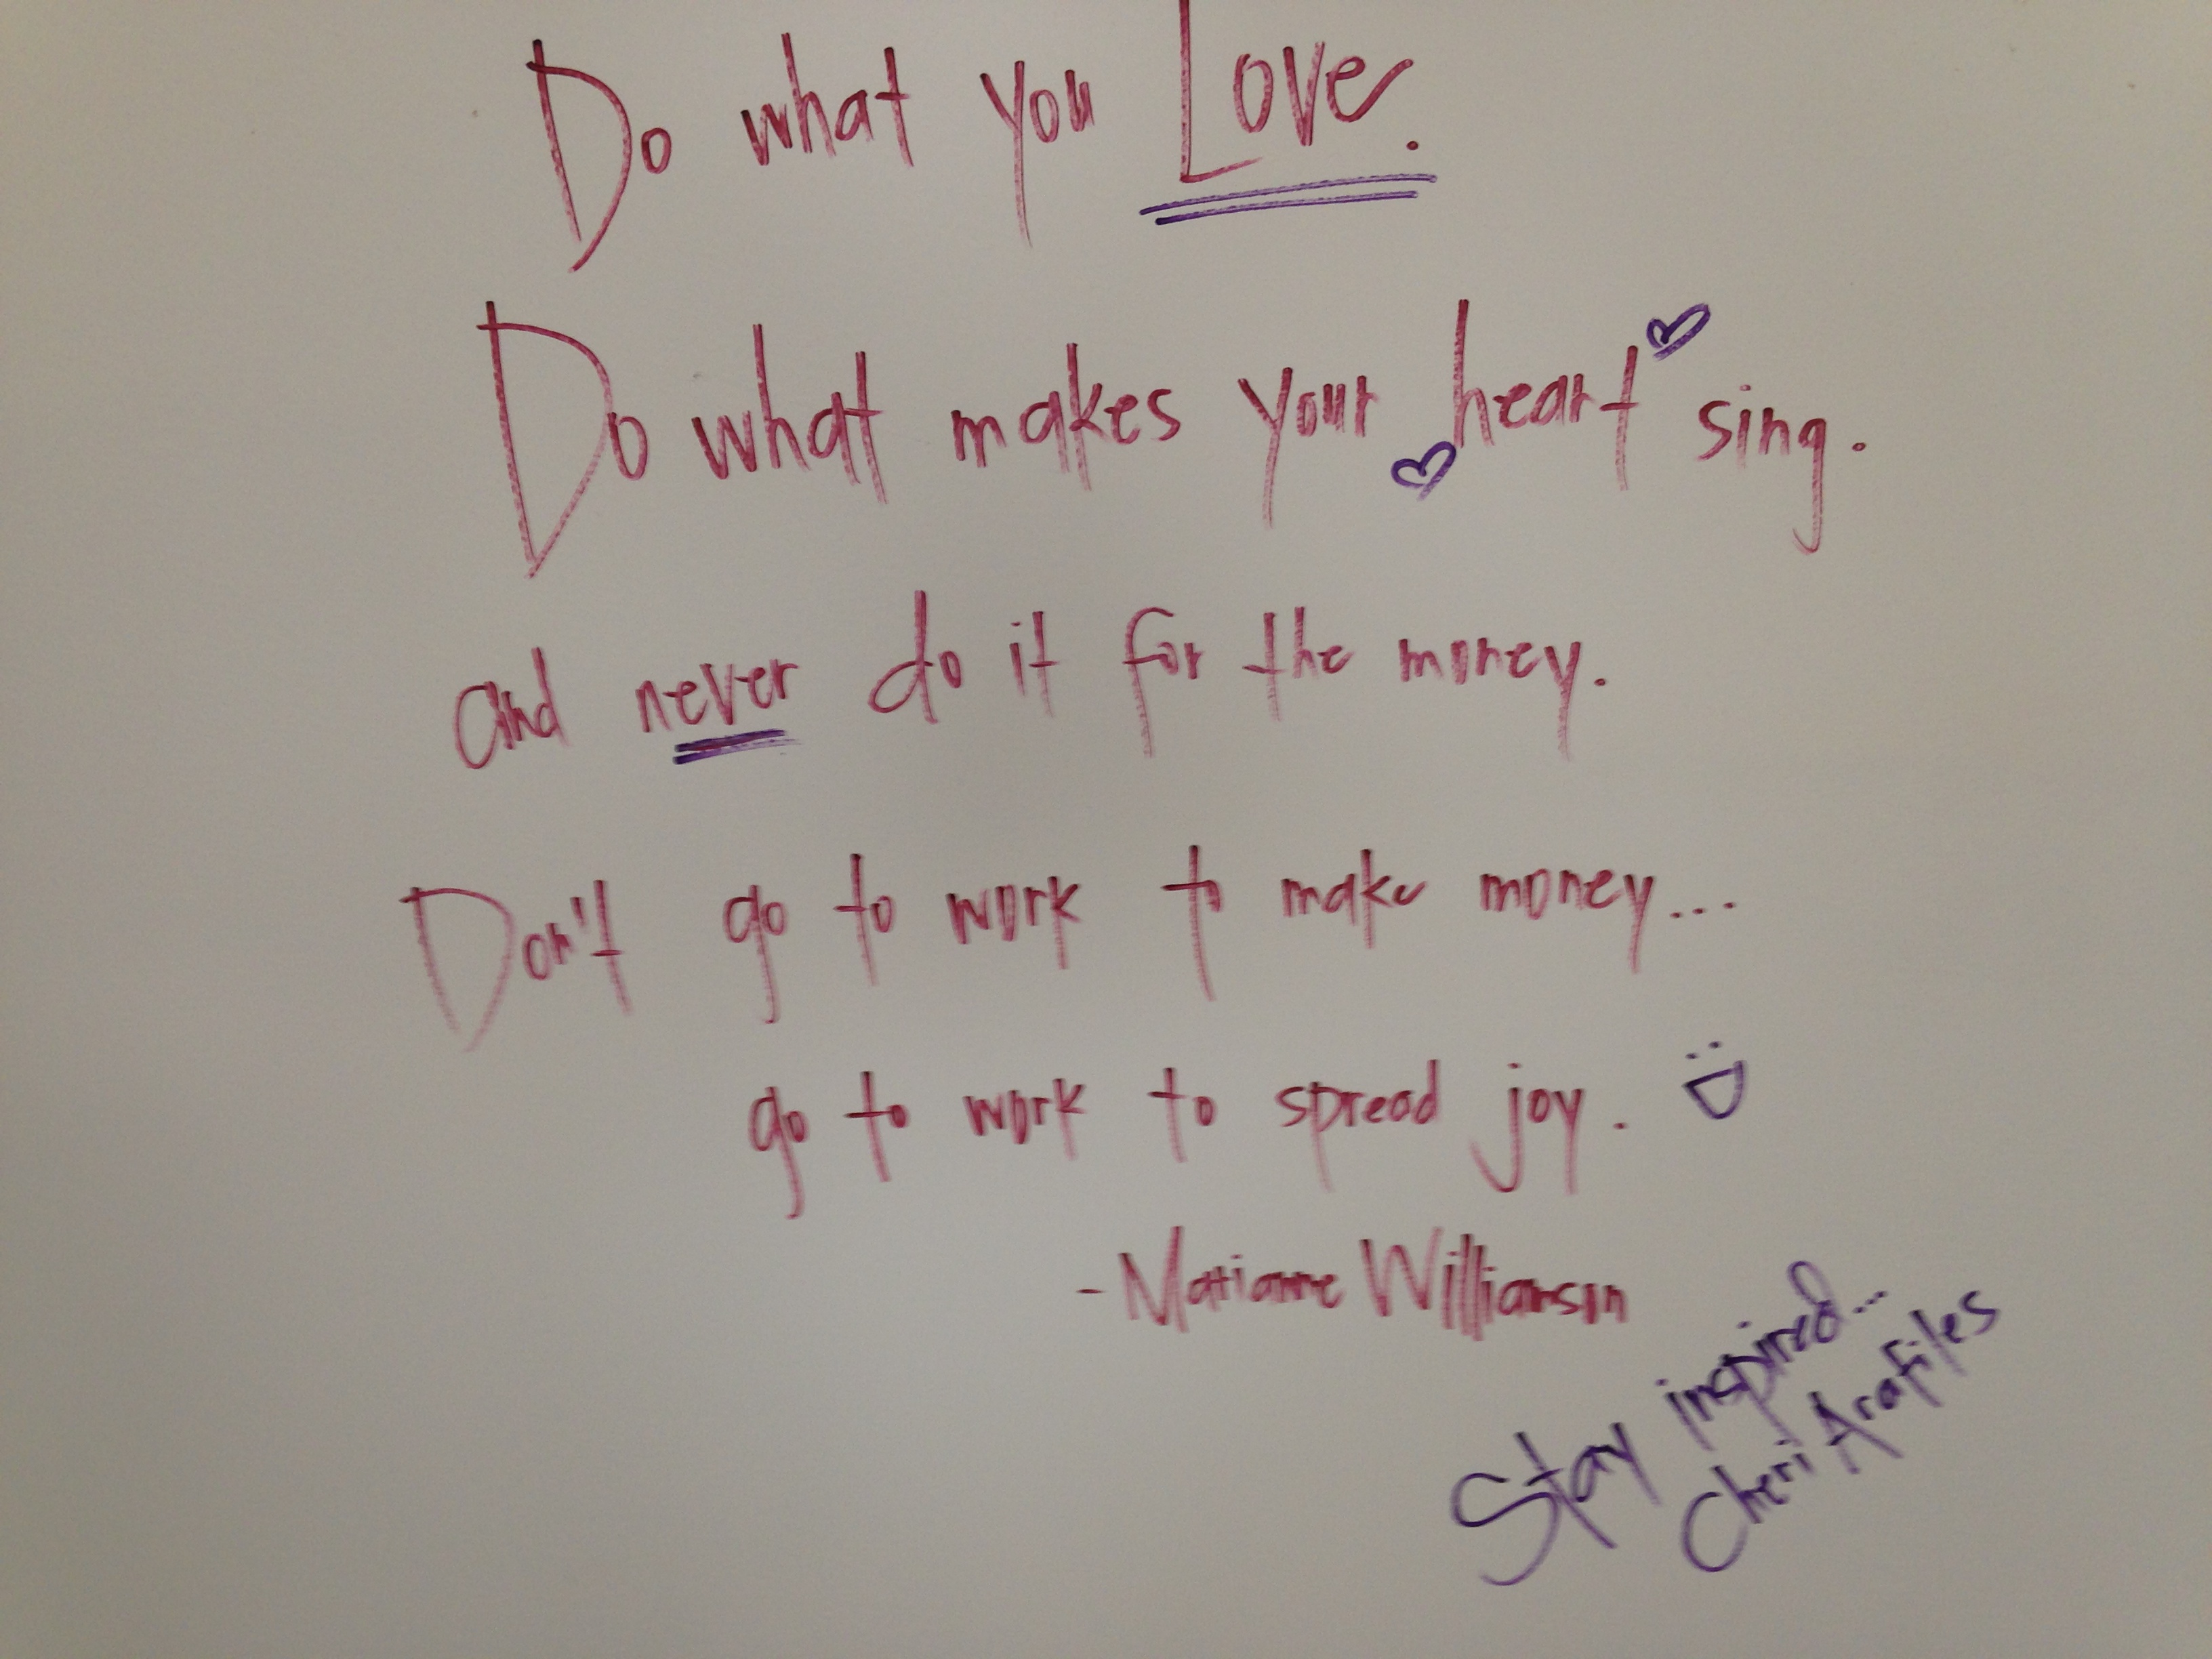 Do what you Love.
Do what makes your heart sing.
and never do it for the money.
Don't go to work to make money...
go to work to spread joy.
- Marianne Williamson
Stay inspired...
Cheri Arafiles